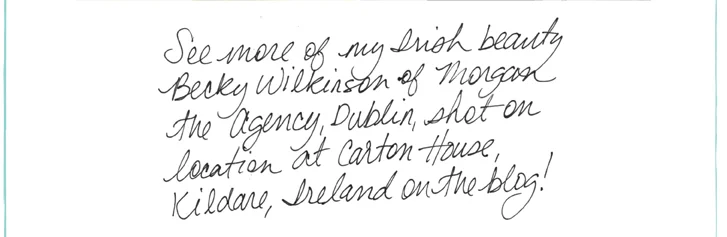 See more of my Irish beauty
Becky Wilkinson of Morgan
the Agency, Dublin, shot on
location at Carton House,
Kildare, Ireland on the blog!